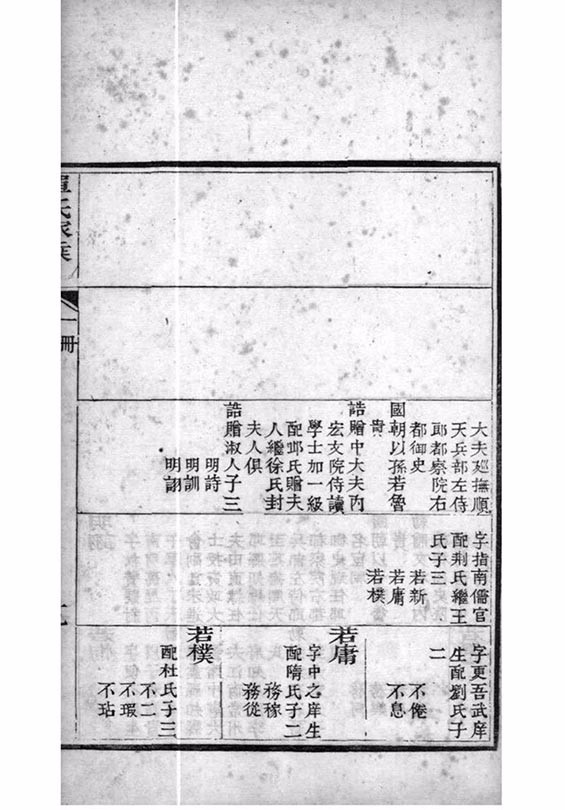 大夫廵撫順
天兵部左侍
郎都察院右
都御史
國朝以孫若魯
貴
誥贈中大夫內
宏文院侍讀
學士加一級
配邱氏贈夫
人繼徐氏封
夫人俱
誥贈淑人子三
明詩
明訓
明詡
字指南儒官
配荆氏繼王
氏子三
若新
若庸
若樸
字更吾武庠
生配劉氏子
二
不倦
不息
若庸
字中之庠生
配隋氏子二
務稼
務從
若樸
配杜氏子三
不二
不瑕
不玷
氏家
一冊